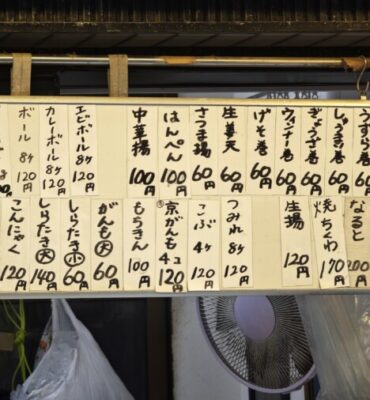 うずら巻 60円
しゅうまい巻 60円
ぎょうざ巻 60円
ウィンナー巻 60円
げそ巻 60円
生姜天 60円
さつま揚 60円
はんぺん 100円
中華揚 100円
エビボール8ケ 120円
カレーボール8ケ 120円
ボール 8ケ 120円
なると 200円
焼ちくわ 170円
生揚 120円
つみれ8ケ 120円
こぶ 4ケ 120円
京がんも4コ 120円
もちきん 100円
がんも大 60円
しらたき小 60円
しらたき大 140円
こんにゃく 120円